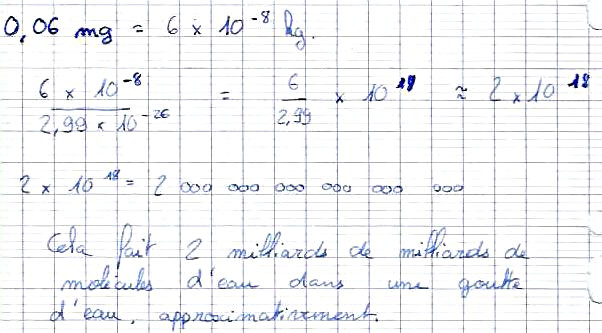 0,06 mg = 6 × 10⁻⁸ kg.
6 × 10⁻⁸ / 2,99 × 10⁻²⁶ = 6 / 2,99 × 10¹⁸ ≈ 2 × 10¹⁸
2 × 10¹⁸ = 2 000 000 000 000 000 000
Cela fait 2 milliards de milliards de
molécules d'eau dans une goutte
d'eau, approximativement.